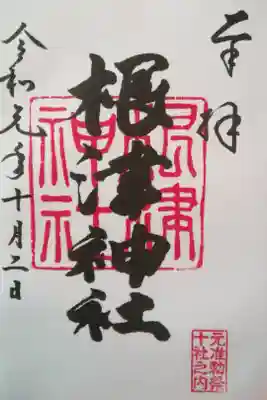 奉拝
根津神社
根津神社
元准勅祭
十社之内
令和元年十月二日